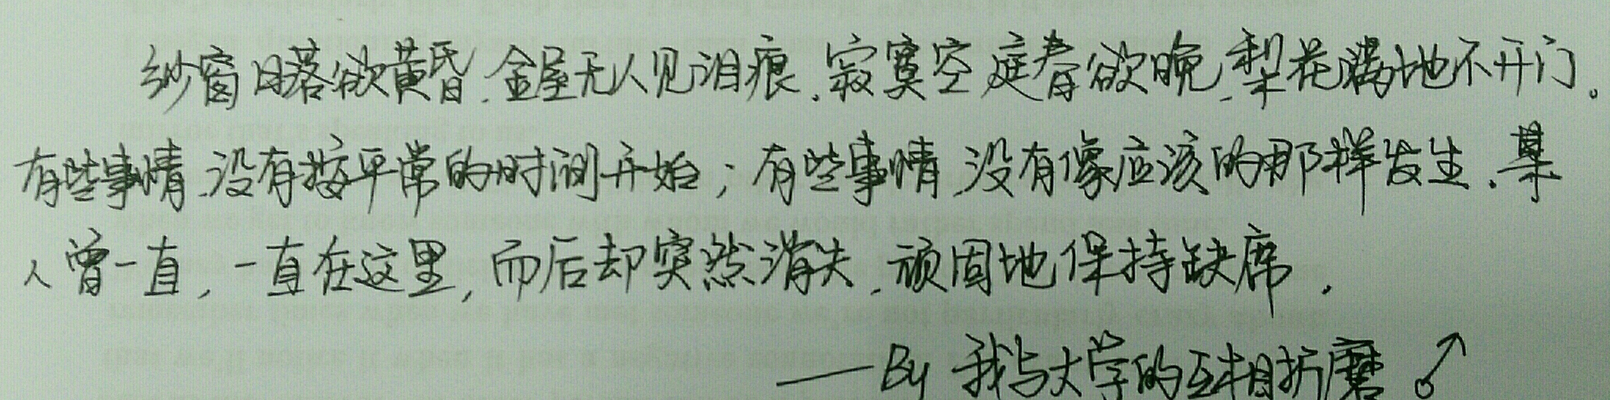 纱窗日落欲黄昏,金屋无人见泪痕,寂寞空庭春欲晚,梨花满地不开门。
有些事情,没有按平常的时间开始;有些事情,没有像应该的那样发生,某
人曾一直,一直在这里,而后却突然消失,顽固地保持缺席,
——By 我与大学的互相折磨 ♂